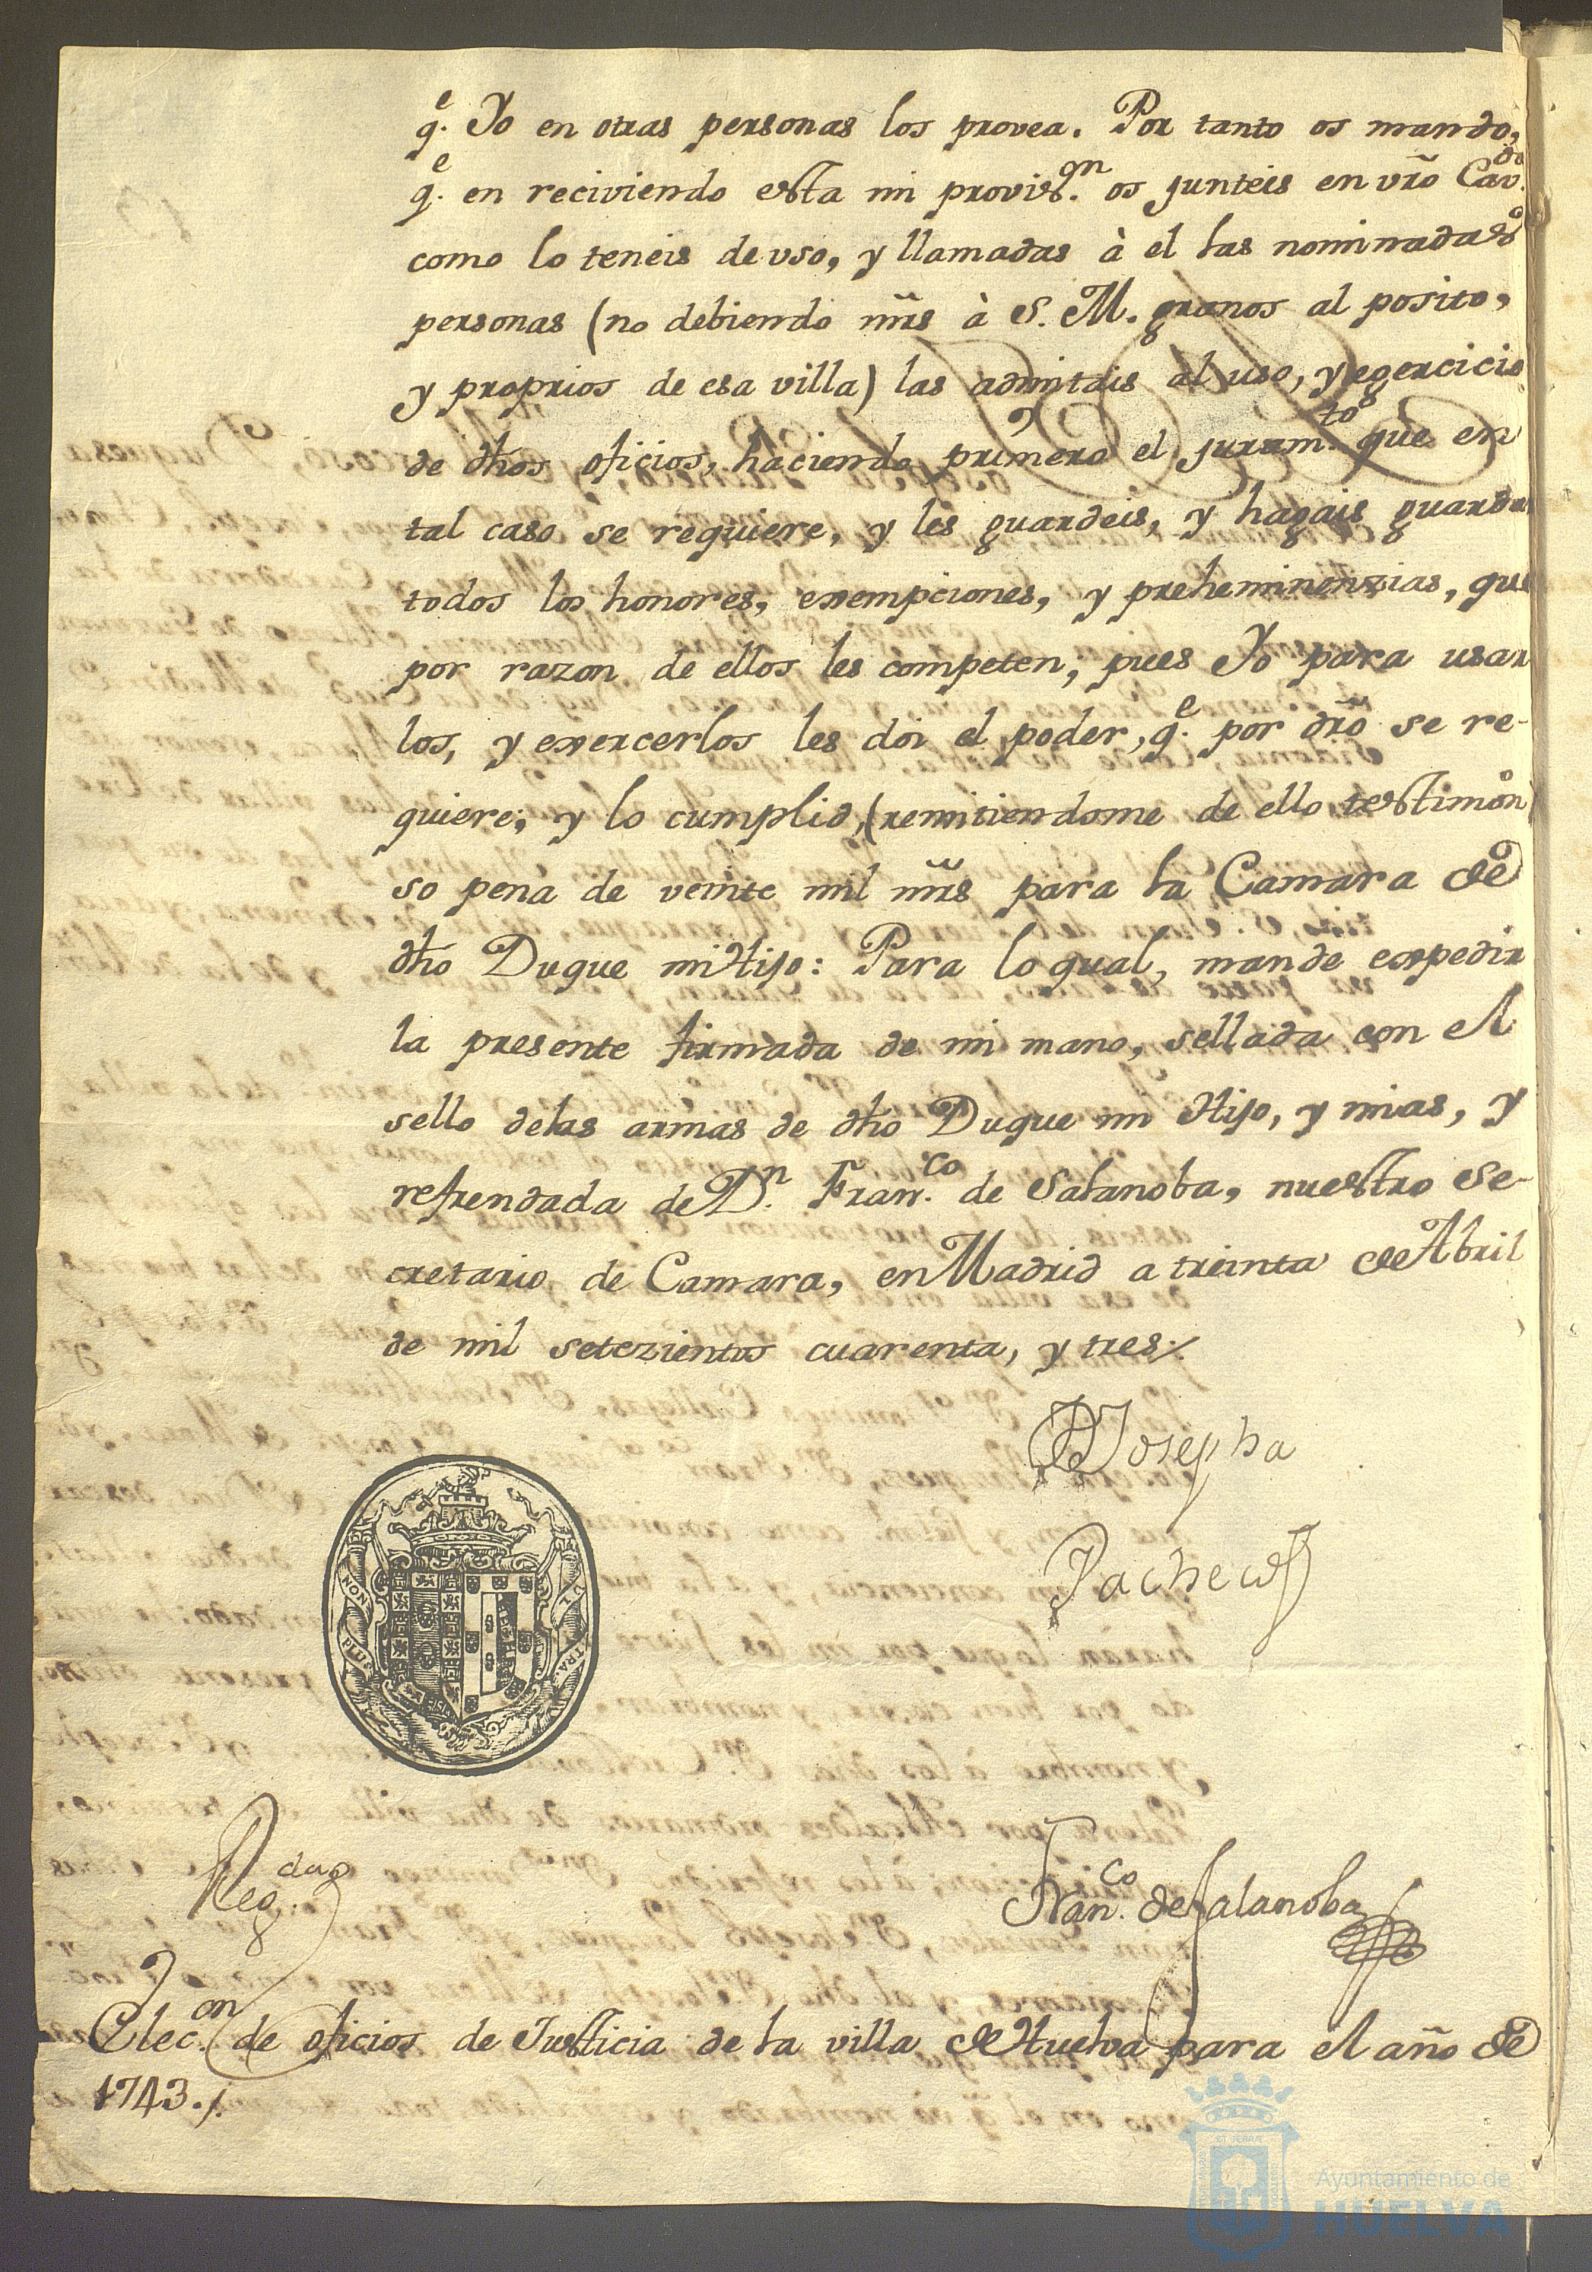 q.e Yo en otras personas los provea. Por tanto os mando,
q.e en reciviendo esta mi provis.on os junteis en vro Cav.do
como lo teneis de uso, y llamadas à el las nominadas
personas (no debiendo mrs à S. M. granos al posito,
y proprios de esa villa) las admitais al uso, y egercicio
de dhos oficios, haciendo primero el juram.to que en
tal caso se requiere, y les guardeis, y hagais guardar
todos los honores, exempciones, y preheminenzias, que
por razon de ellos les competen; pues Yo para usar
los, y exercerlos les doi el poder, q.e por dro se re-
quiere; y lo cumplid, (remitiendome de ello testimon)
so pena de veinte mil mrs para la Camara de
dho Duque mi Hijo: Para lo qual, mande expedir
la presente firmada de mi mano, sellada con el
sello de las armas de dho Duque mi Hijo, y mias, y
refrendada de D.n Fran.co de Salanoba, nuestro Se-
cretario de Camara, en Madrid a treinta de Abril
de mil setezientos cuarenta, y tres
Josepha
Pacheco
NON PLUS ULTRA
Reg.da
Fran.co de Salanoba
Elec.on de oficios de Justicia de la villa de Huelva para el año de
1743.
Ayuntamiento de
HUELVA